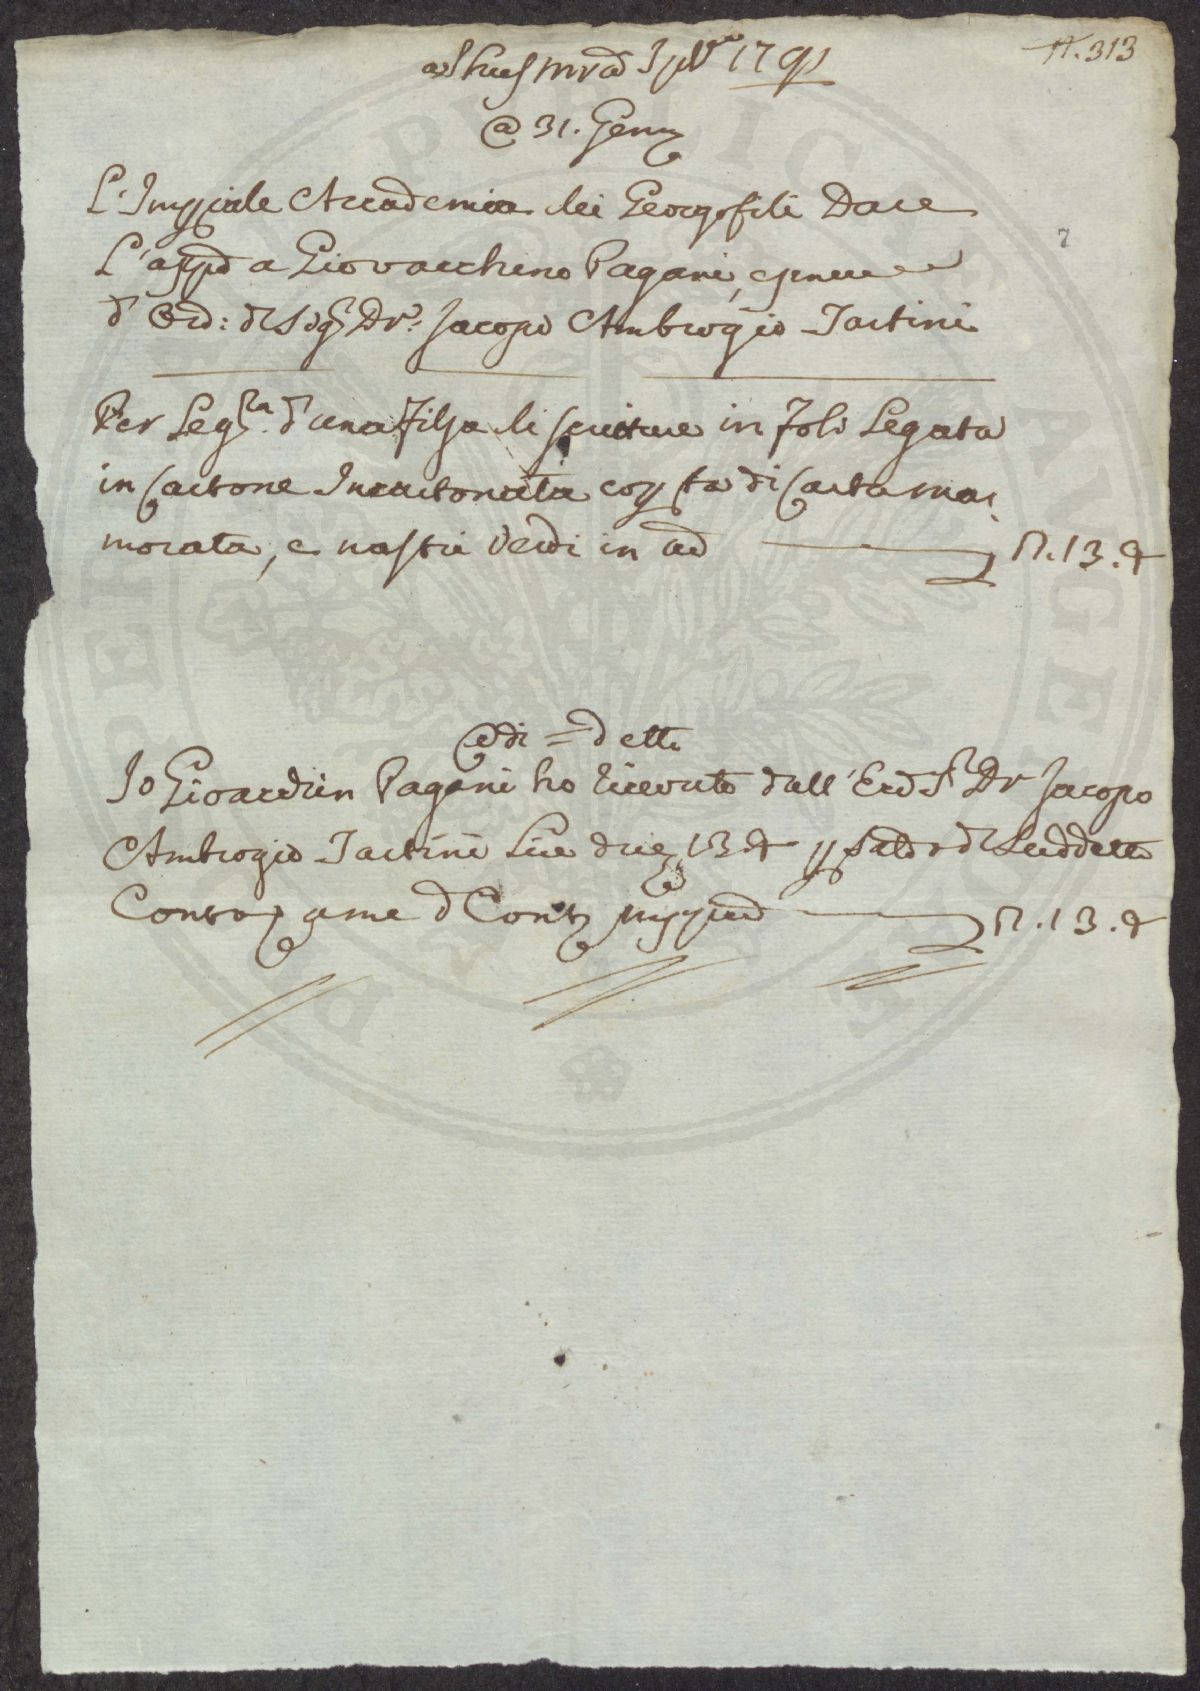 N. 313
1791
@ 31. Genn
L'Impiale Accademia dei Georgofili Dare
7
L'appo a Giovacchino Pagani, e
d' Ord: d Sig Dr. Jacopo Ambrogio Tartini
Per Leg.ra d' una Filsa di scritture in foli Legata
in Cartone Incartonata cop ta di Carta mar
morata, e nastri verdi in ad 13.
@ di = detto
Io Giovacchin Pagani ho ricevuto dall' Ecc S Dr Jacopo
Ambrogio Tartini Lire 13 p saldo d Suddetto
Conto, a me d Cont 13.